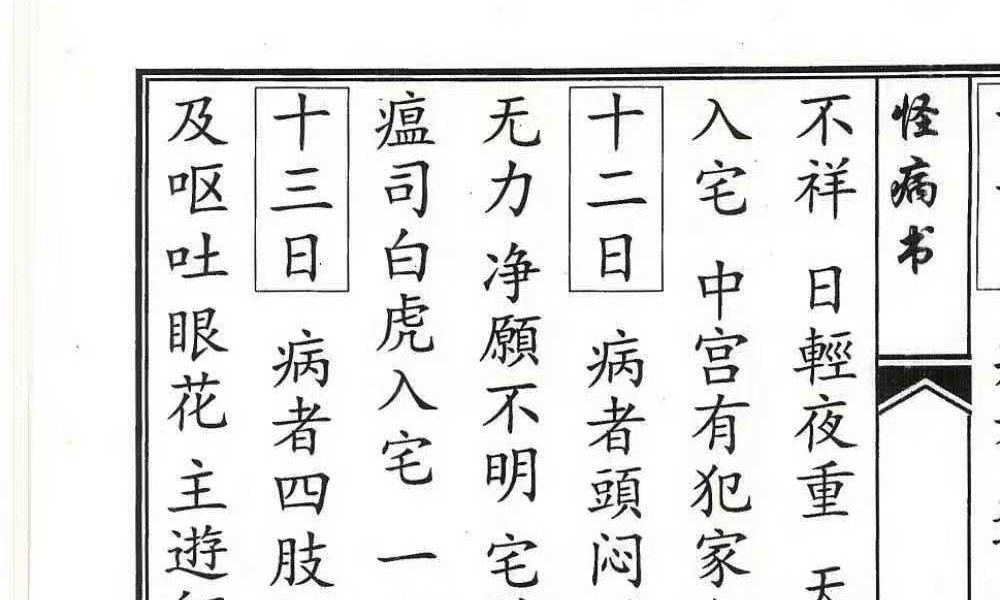 怪病书
不祥 日輕夜重
入宅 中宫有犯家
十二日 病者頭闷
无力 净願不明 宅
瘟司白虎入宅 一
十三日 病者四肢
及呕吐眼花 主遊